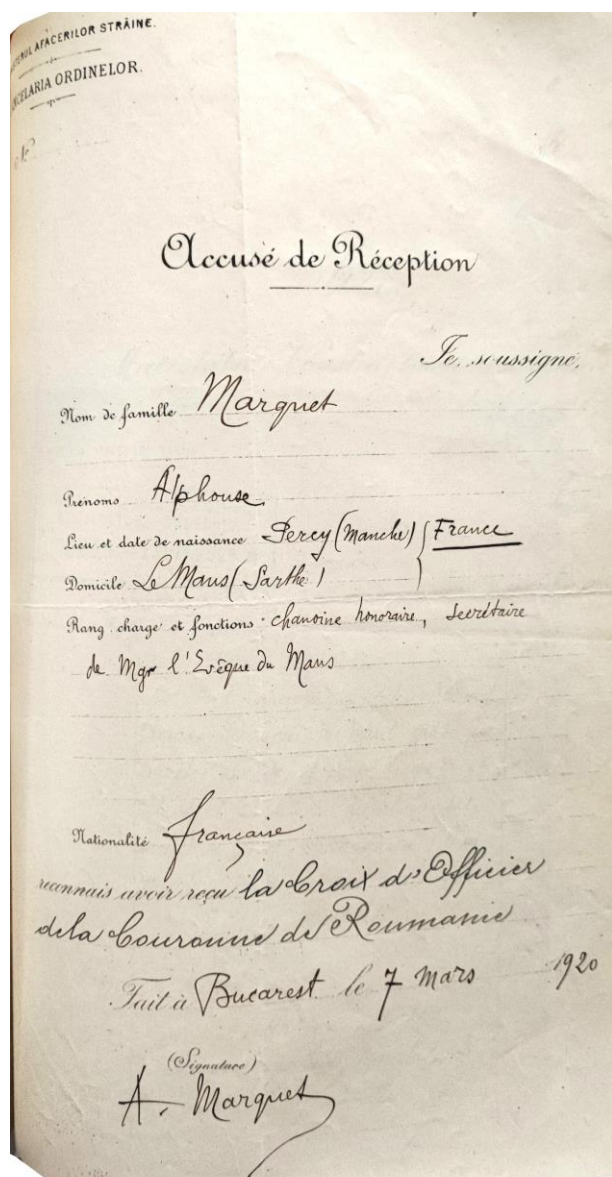 AFACERILOR STRĂINE.
ORDINELOR.
No
Accusé de Réception
Je, soussigné,
Nom de famille Marquet
Prénoms Alphonse
Lieu et date de naissance Percy (Manche) } France
Domicile Le Mans (Sarthe)
Rang charge et fonctions chanoine honoraire, secrétaire
de Mgr l'Evêque du Mans
Nationalité française
reconnais avoir reçu la Croix d'Officier
de la Couronne de Roumanie
Fait à Bucarest le 7 mars 1920
(Signature)
A. Marquet